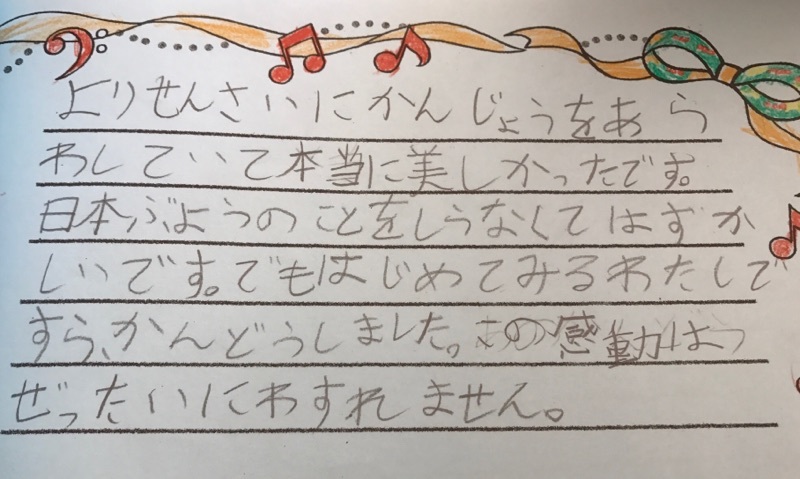 よりせんさいにかんじょうをあら
わしていて本当に美しかったです。
日本ぶようのことをしらなくてはずか
しいです。でもはじめてみるわたしで
すら、かんどうしました。この感動は
ぜったいにわすれません。